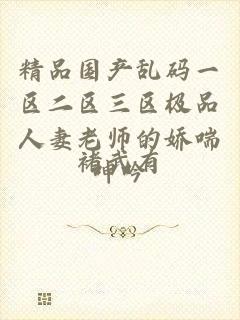 精品国产乱码一
区二区三区极品
人妻老师的娇喘
呻吟
褚武有